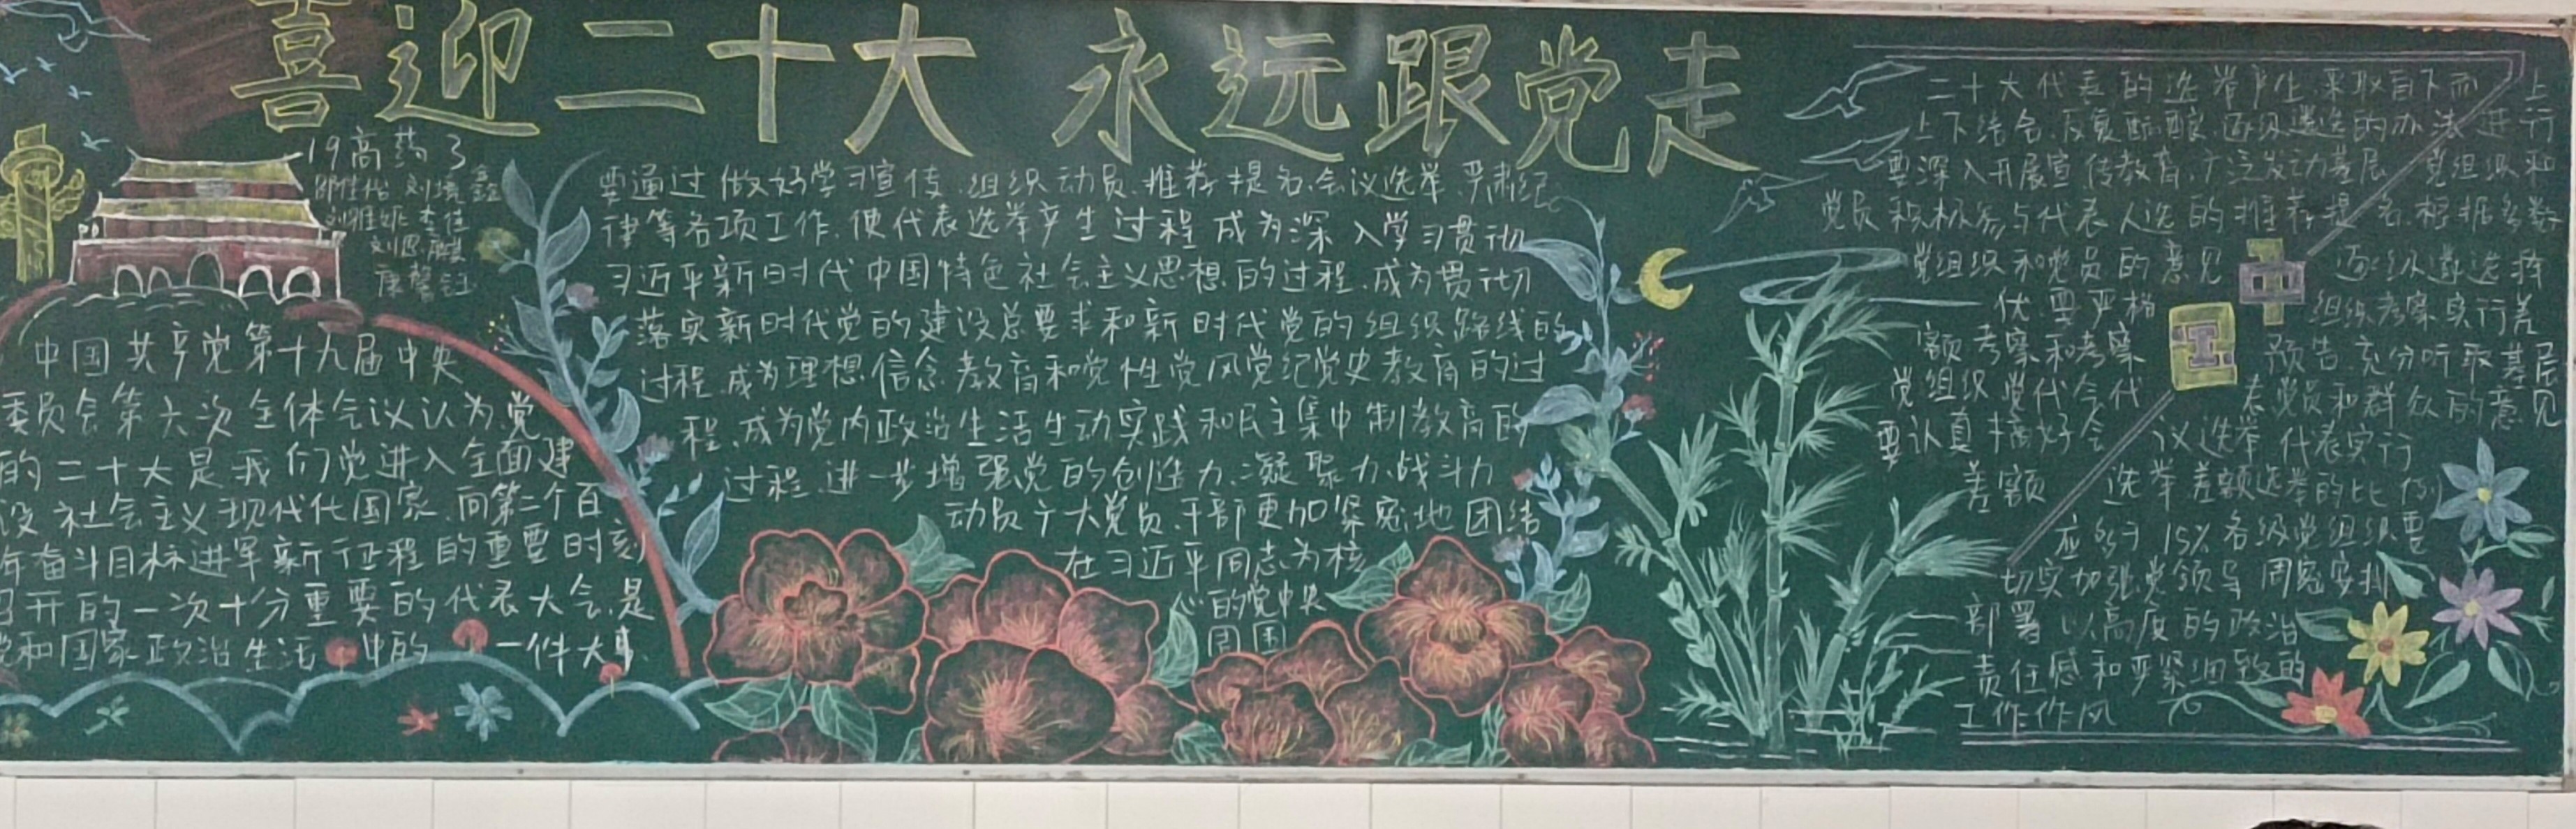 喜迎二十大 永远跟党走
19高药3
刘思麒
中国共产党第十九届中央
委员会第六次全体会议认为党
的二十大是我们党进入全面建
设社会主义现代化国家、向第二个百
年奋斗目标进军新征程的重要时刻
召开的一次十分重要的代表大会,是
党和国家政治生活中的一件大事.
要通过做好学习宣传、组织动员、推荐提名、会议选举、严肃纪
律等各项工作,使代表选举产生过程成为深入学习贯彻
习近平新时代中国特色社会主义思想的过程,成为贯彻
落实新时代党的建设总要求和新时代党的组织路线的
过程,成为理想信念教育和党性党风党纪党史教育的过
程,成为党内政治生活生动实践和民主集中制教育的
过程,进一步增强党的创造力、凝聚力、战斗力
动员广大党员、干部更加紧密地团结
在习近平同志为核
心的党中央
周围
二十大代表的选举产生,采取自下而上
上下结合、反复酝酿、逐级遴选的办法进行
要深入开展宣传教育,广泛发动基层党组织和
党员积极参与代表人选的推荐提名,根据多数
党组织和党员的意见 逐级遴选择
优.要严格 组织考察,实行差
额考察和考察 预告,充分听取基层
党组织 党代会代 表党员和群众的意见
要认真搞好会 议选举 代表实行
差额 选举 差额选举的比例
应多于15%.各级党组织要
切实加强党领导 周密安排
部署 以高度的政治
责任感和严紧细致的
工作作风
中
国